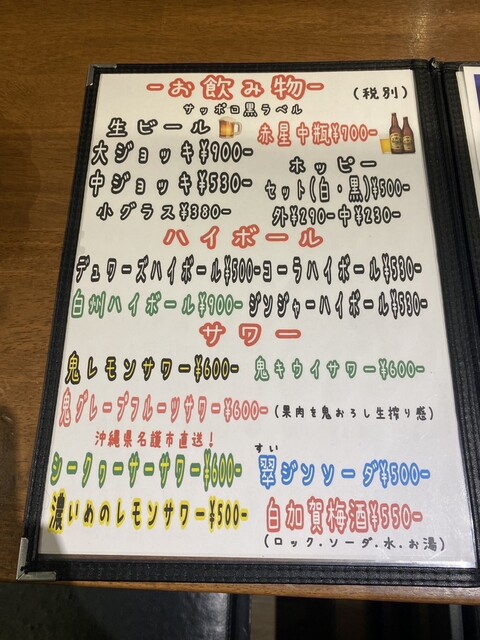 -お飲み物-
(税別)
サッポロ黒ラベル
生ビール
大ジョッキ¥900-
中ジョッキ¥530-
小グラス¥380-
赤星中瓶¥700-
ホッピー
セット(白・黒)¥500-
外¥290-中¥230-
ハイボール
デュワーズハイボール¥500-コーラハイボール¥530-
白州ハイボール¥900-ジンジャーハイボール¥530-
サワー
鬼レモンサワー¥600-
鬼キウイサワー¥600-
鬼グレープフルーツサワー¥600-(果肉を鬼おろし生搾り感)
沖縄県名護市直送!
シークヮーサーサワー¥600-
すい
翠ジンソーダ¥500-
濃いめのレモンサワー¥500-
白加賀梅酒¥550-
(ロック.ソーダ.水.お湯)